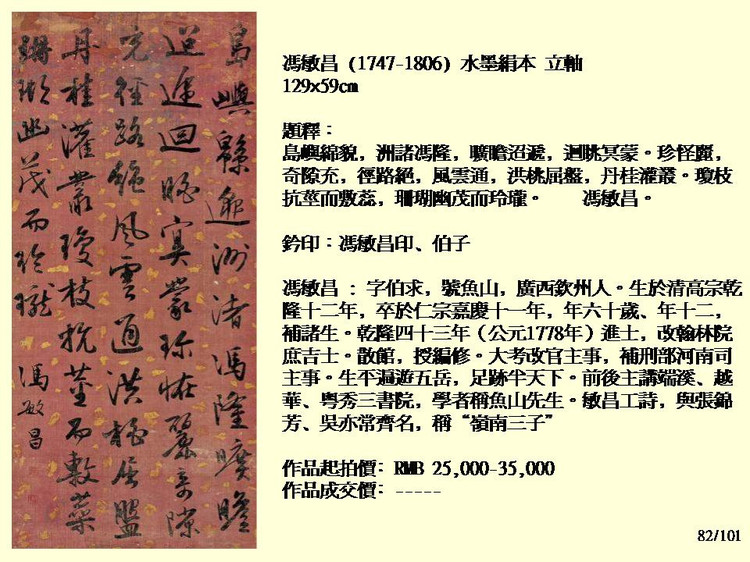 島嶼緜邈洲渚馮隆曠瞻
迢遞迴眺冥蒙珍怪麗奇隙
充徑路絕風雲通洪桃屈盤
丹桂灌叢瓊枝抗莖而敷蘂
珊瑚幽茂而玲瓏
馮敏昌
馮敏昌 (1747-1806) 水墨絹本 立軸
129x59cm
題釋：
島嶼綿貌，洲諸馮隆，曠瞻迢遞，迴眺冥蒙。珍怪麗，
奇隙充，徑路絕，風雲通，洪桃屈盤，丹桂灌叢。瓊枝
抗莖而敷蕊，珊瑚幽茂而玲瓏。 馮敏昌。
鈐印：馮敏昌印、伯子
馮敏昌 : 字伯求，號魚山，廣西欽州人。生於清高宗乾
隆十二年，卒於仁宗嘉慶十一年，年六十歲、年十二，
補諸生。乾隆四十三年（公元1778年）進士，改翰林院
庶吉士。散館，授編修。大考改官主事，補刑部河南司
主事。生平遍遊五岳，足跡半天下。前後主講端溪、越
華、粵秀三書院，學者稱魚山先生。敏昌工詩，與張錦
芳、吳亦常齊名，稱“嶺南三子”
作品起拍價: RMB 25,000-35,000
作品成交價: -----
82/101